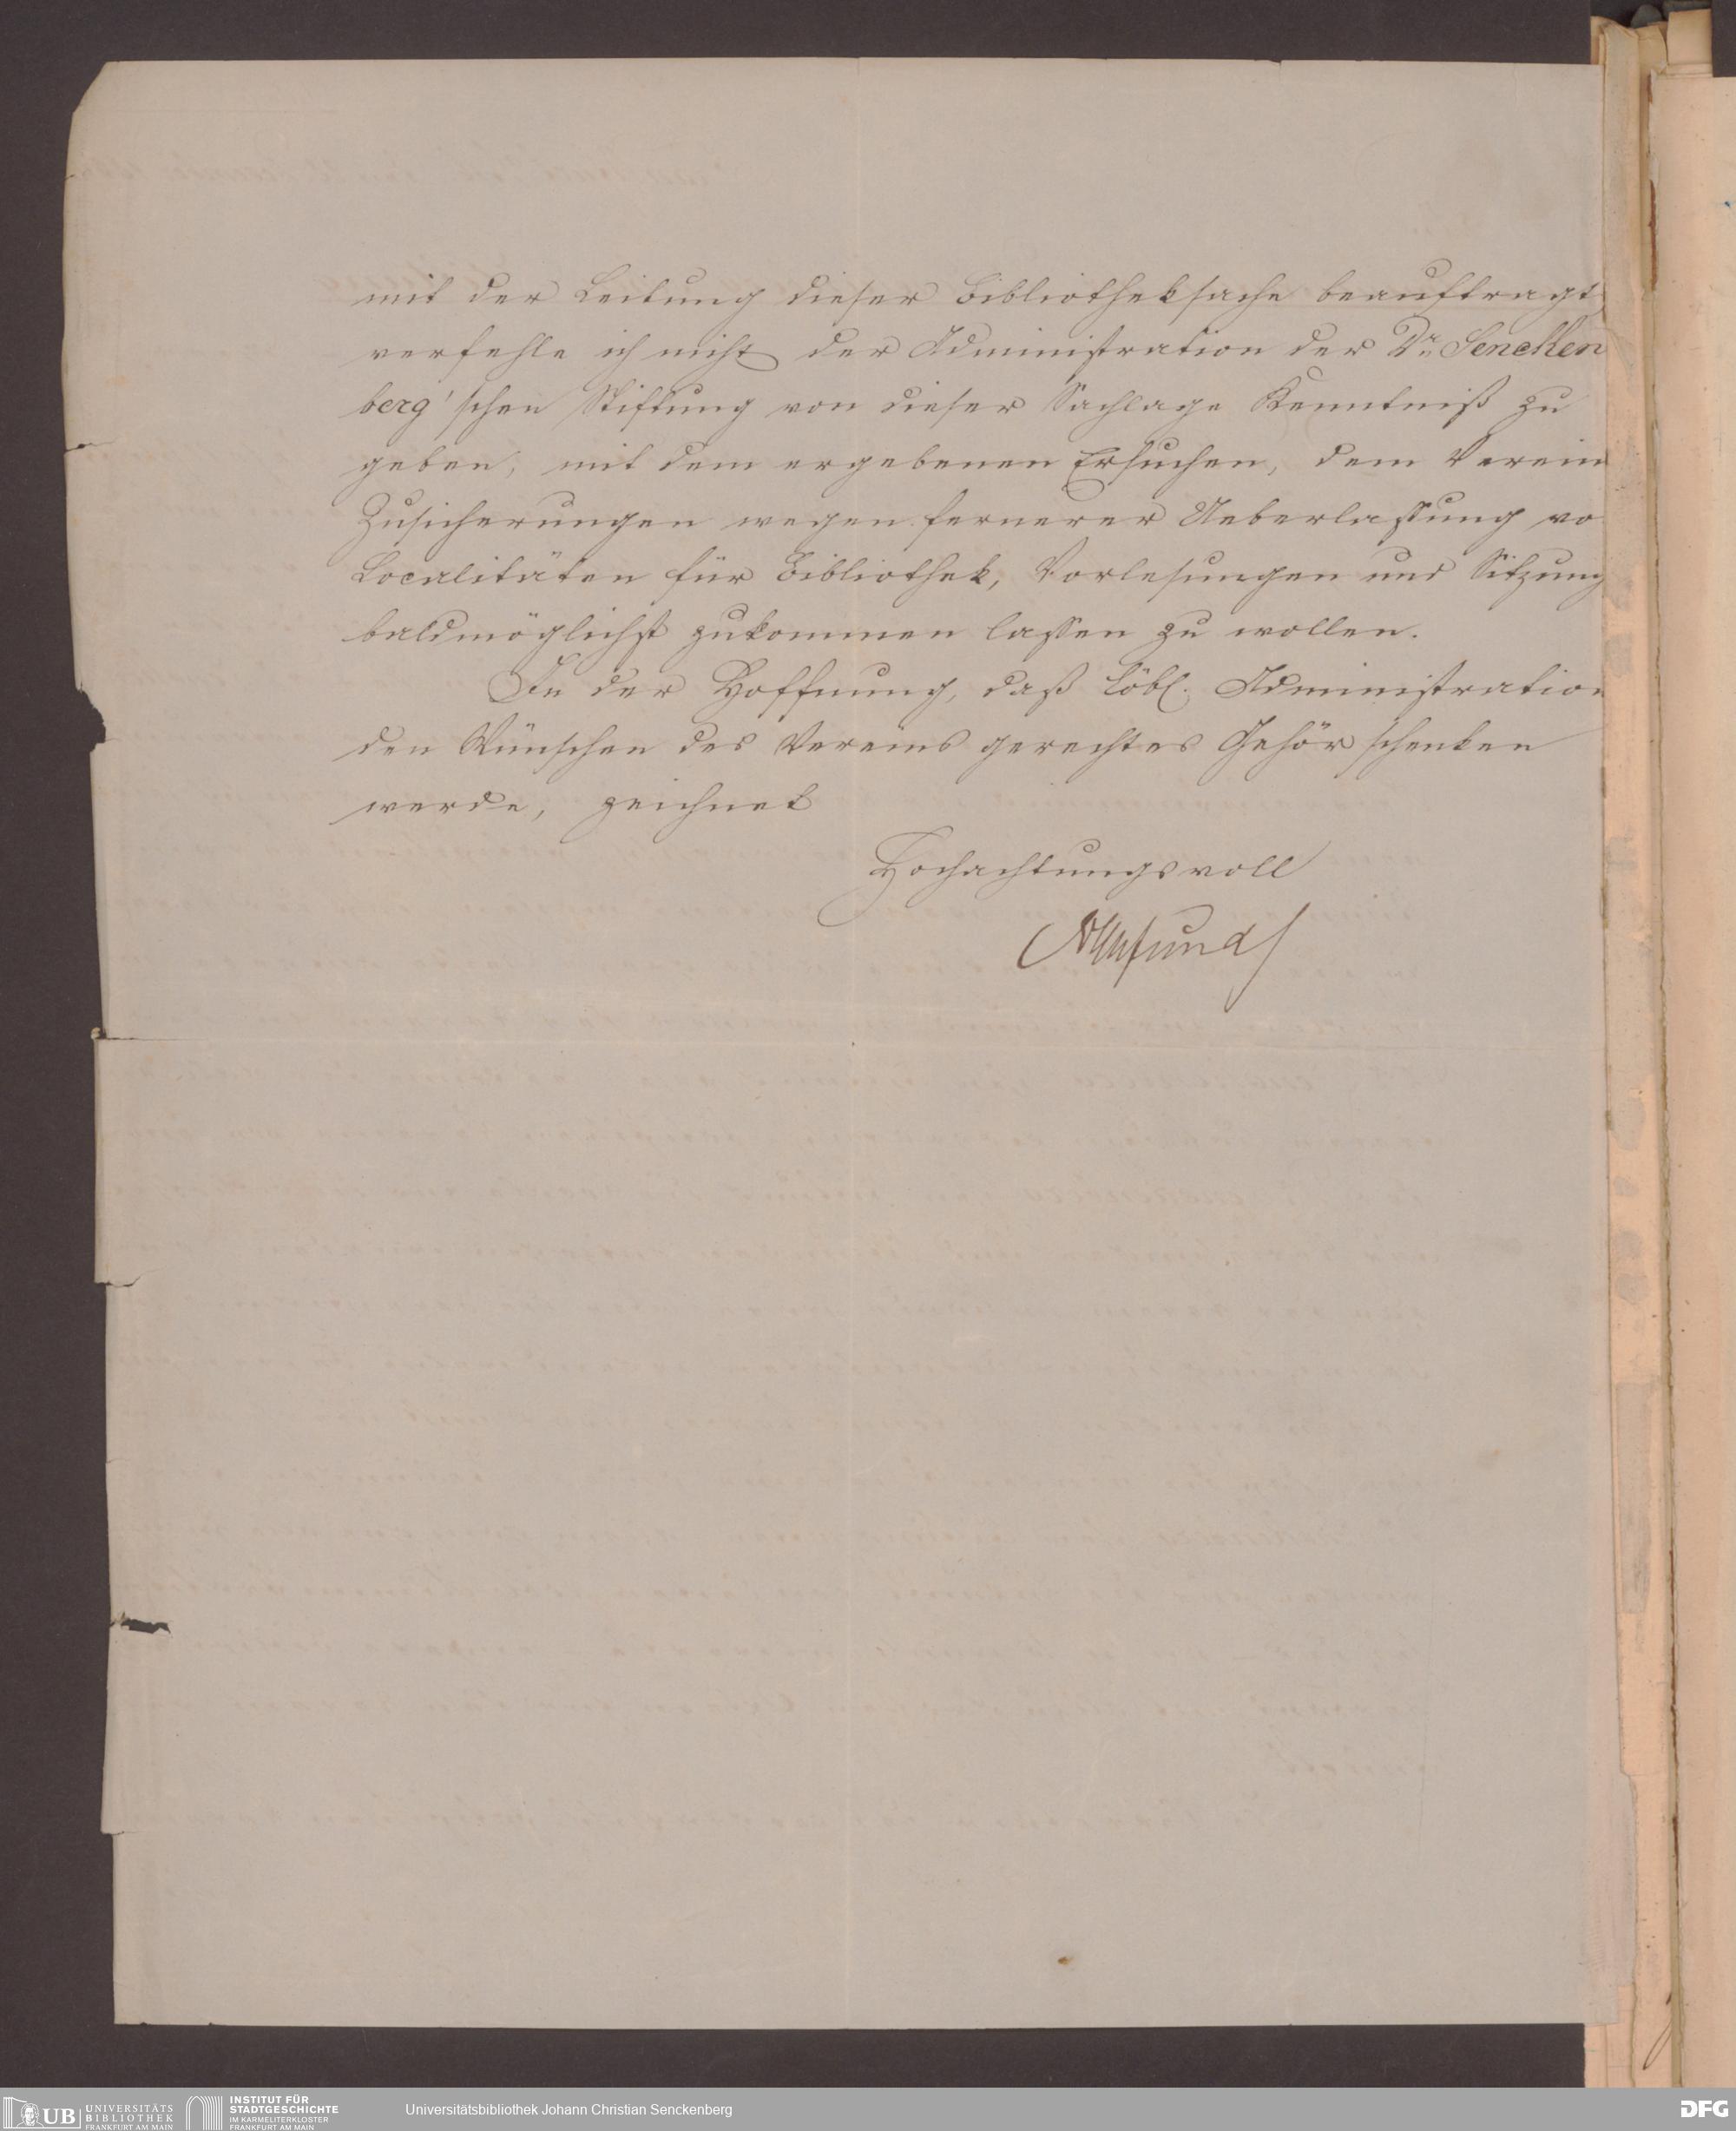 mit der Leitung dieser Bibliotheksache beauftragt,
verfehle ich nicht der Administration der Dr. Sencken
berg'schen Stiftung von dieser Sachlage Kenntniß zu
geben, mit dem ergebenen Ersuchen, dem Verein
Zusicherungen wegen fernerer Ueberlassung vo
Localitäten für Bibliothek, Vorlesungen und Sitzung
baldmöglichst zukommen lassen zu wollen.
In der Hoffnung, daß Löbl. Administration
den Wünschen des Vereins gerechtes Gehör schenken
werde, zeichnet
Hochachtungsvoll
UB UNIVERSITÄTS
BIBLIOTHEK
FRANKFURT AM MAIN
INSTITUT FÜR
STADTGESCHICHTE
IM KARMELITERKLOSTER
FRANKFURT AM MAIN
Universitätsbibliothek Johann Christian Senckenberg
DFG